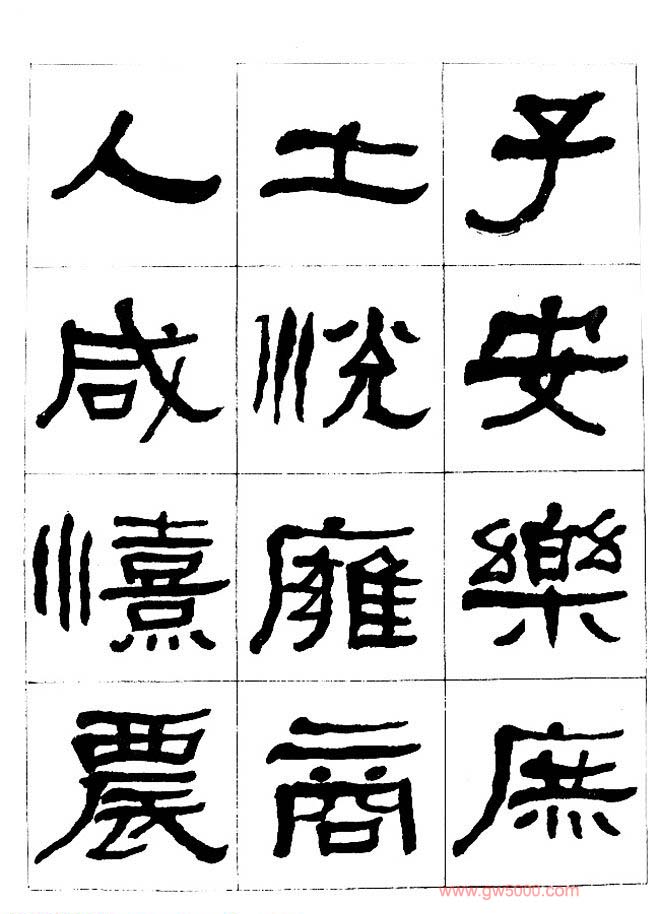 子安樂庶
士悅雍商
人咸憘農
www.gw5000.com